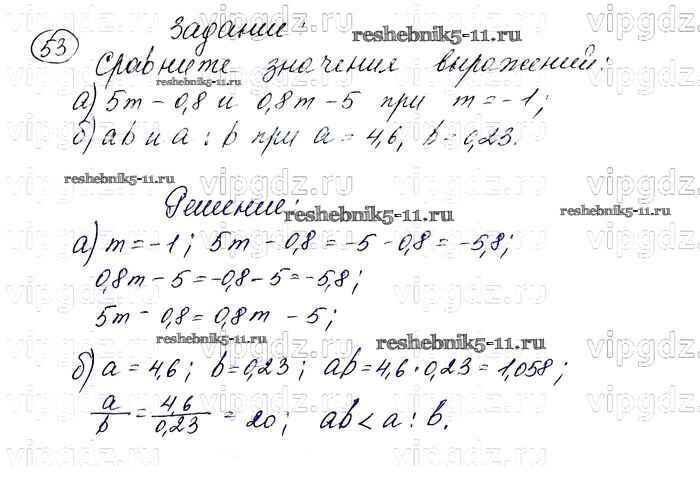 53 Задание:
Сравните значения выражений:
а) 5m - 0,8 и 0,8m - 5 при m = -1;
б) ab и a : b при a = 4,6, b = 0,23.
Решение:
а) m = -1; 5m - 0,8 = -5 - 0,8 = -5,8;
0,8m - 5 = -0,8 - 5 = -5,8;
5m - 0,8 = 0,8m - 5;
б) a = 4,6; b = 0,23; ab = 4,6 · 0,23 = 1,058;
a/b = 4,6/0,23 = 20; ab < a : b.
reshebnik5-11.ru
reshebnik5-11.ru
reshebnik5-11.ru
reshebnik5-11.ru
reshebnik5-11.ru
reshebnik5-11.ru
reshebnik5-11.ru
vipgdz.ru